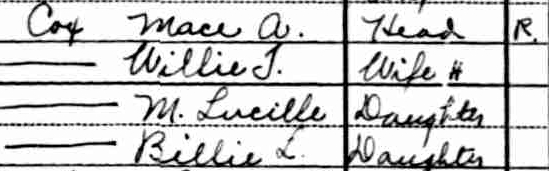 Cox Mace A. Head R.
—— Willie J. Wife H
—— M. Lucille Daughter
—— Billie L. Daughter